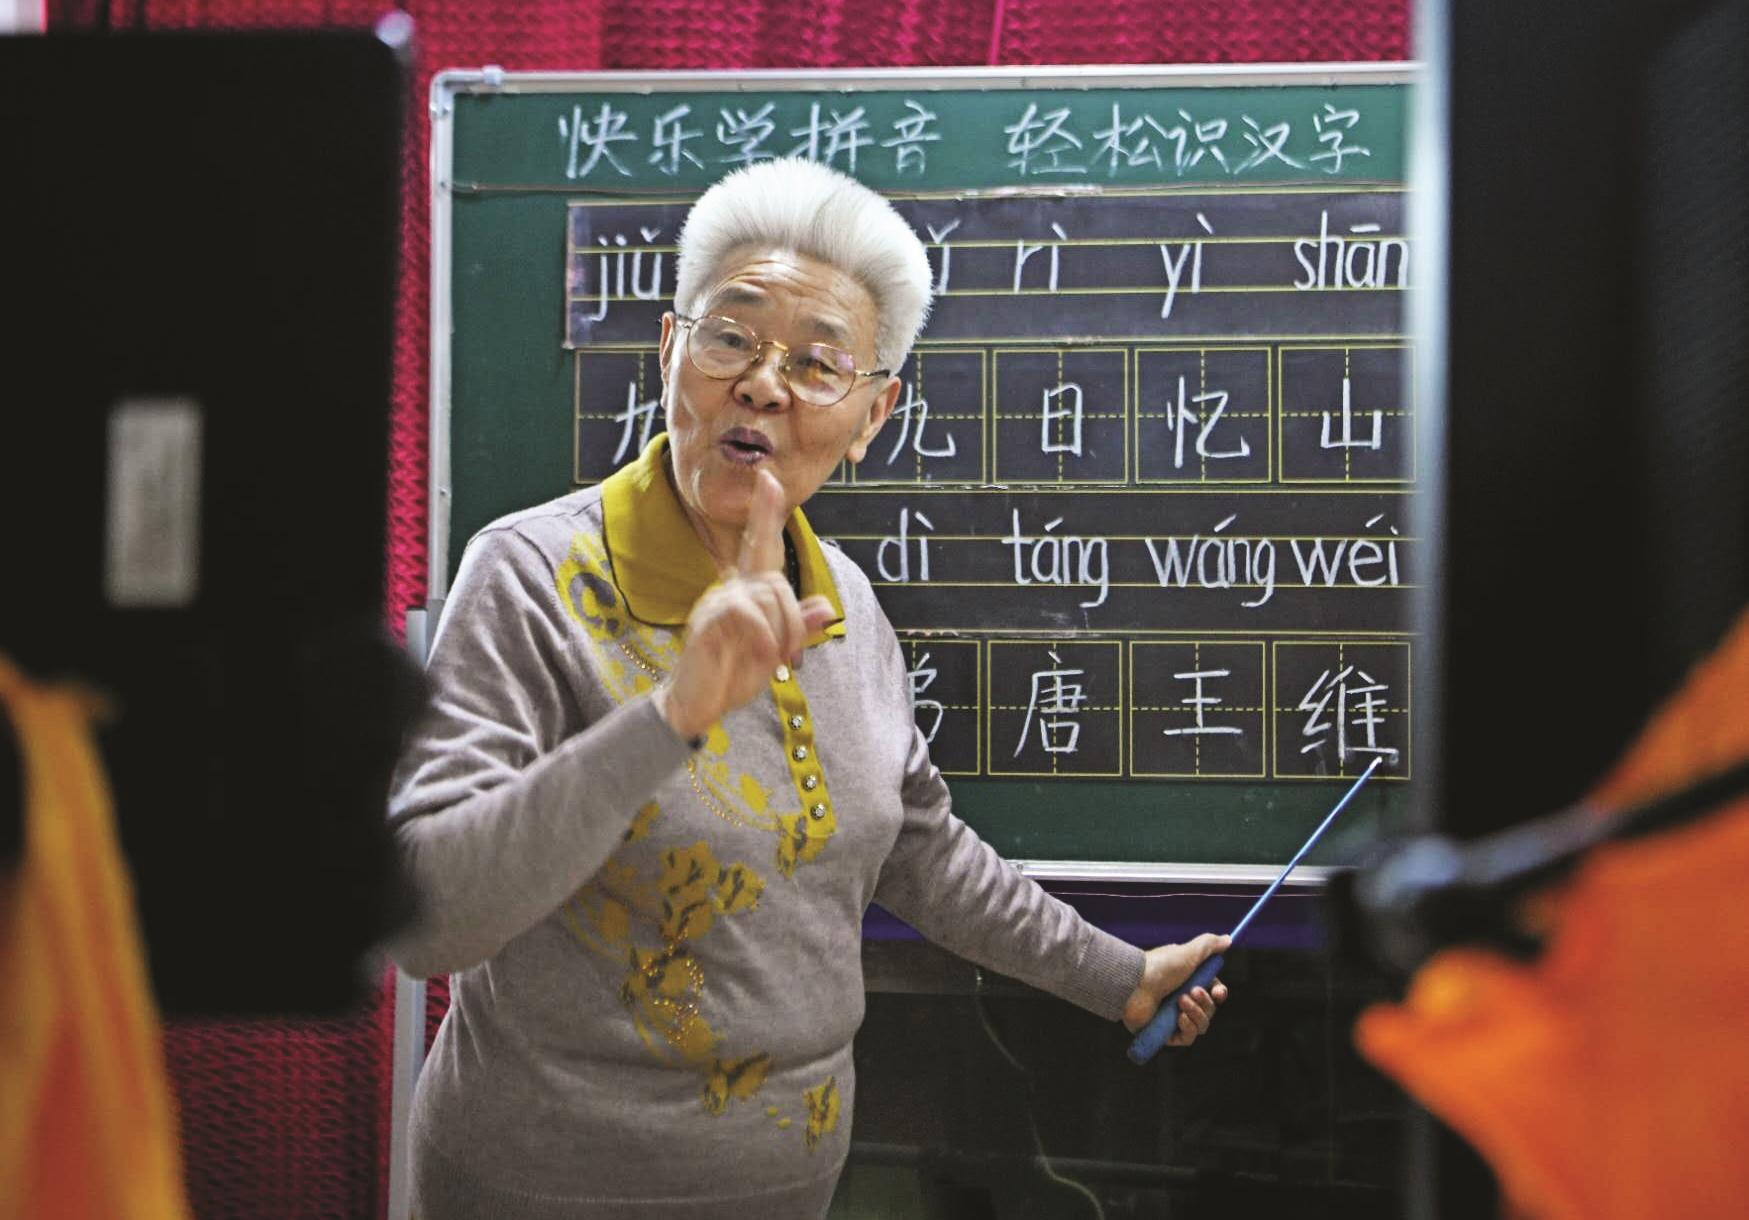 快乐学拼音 轻松识汉字
jiǔ rì yì shān
九 九 日 忆 山
dì táng wáng wéi
唐 王 维